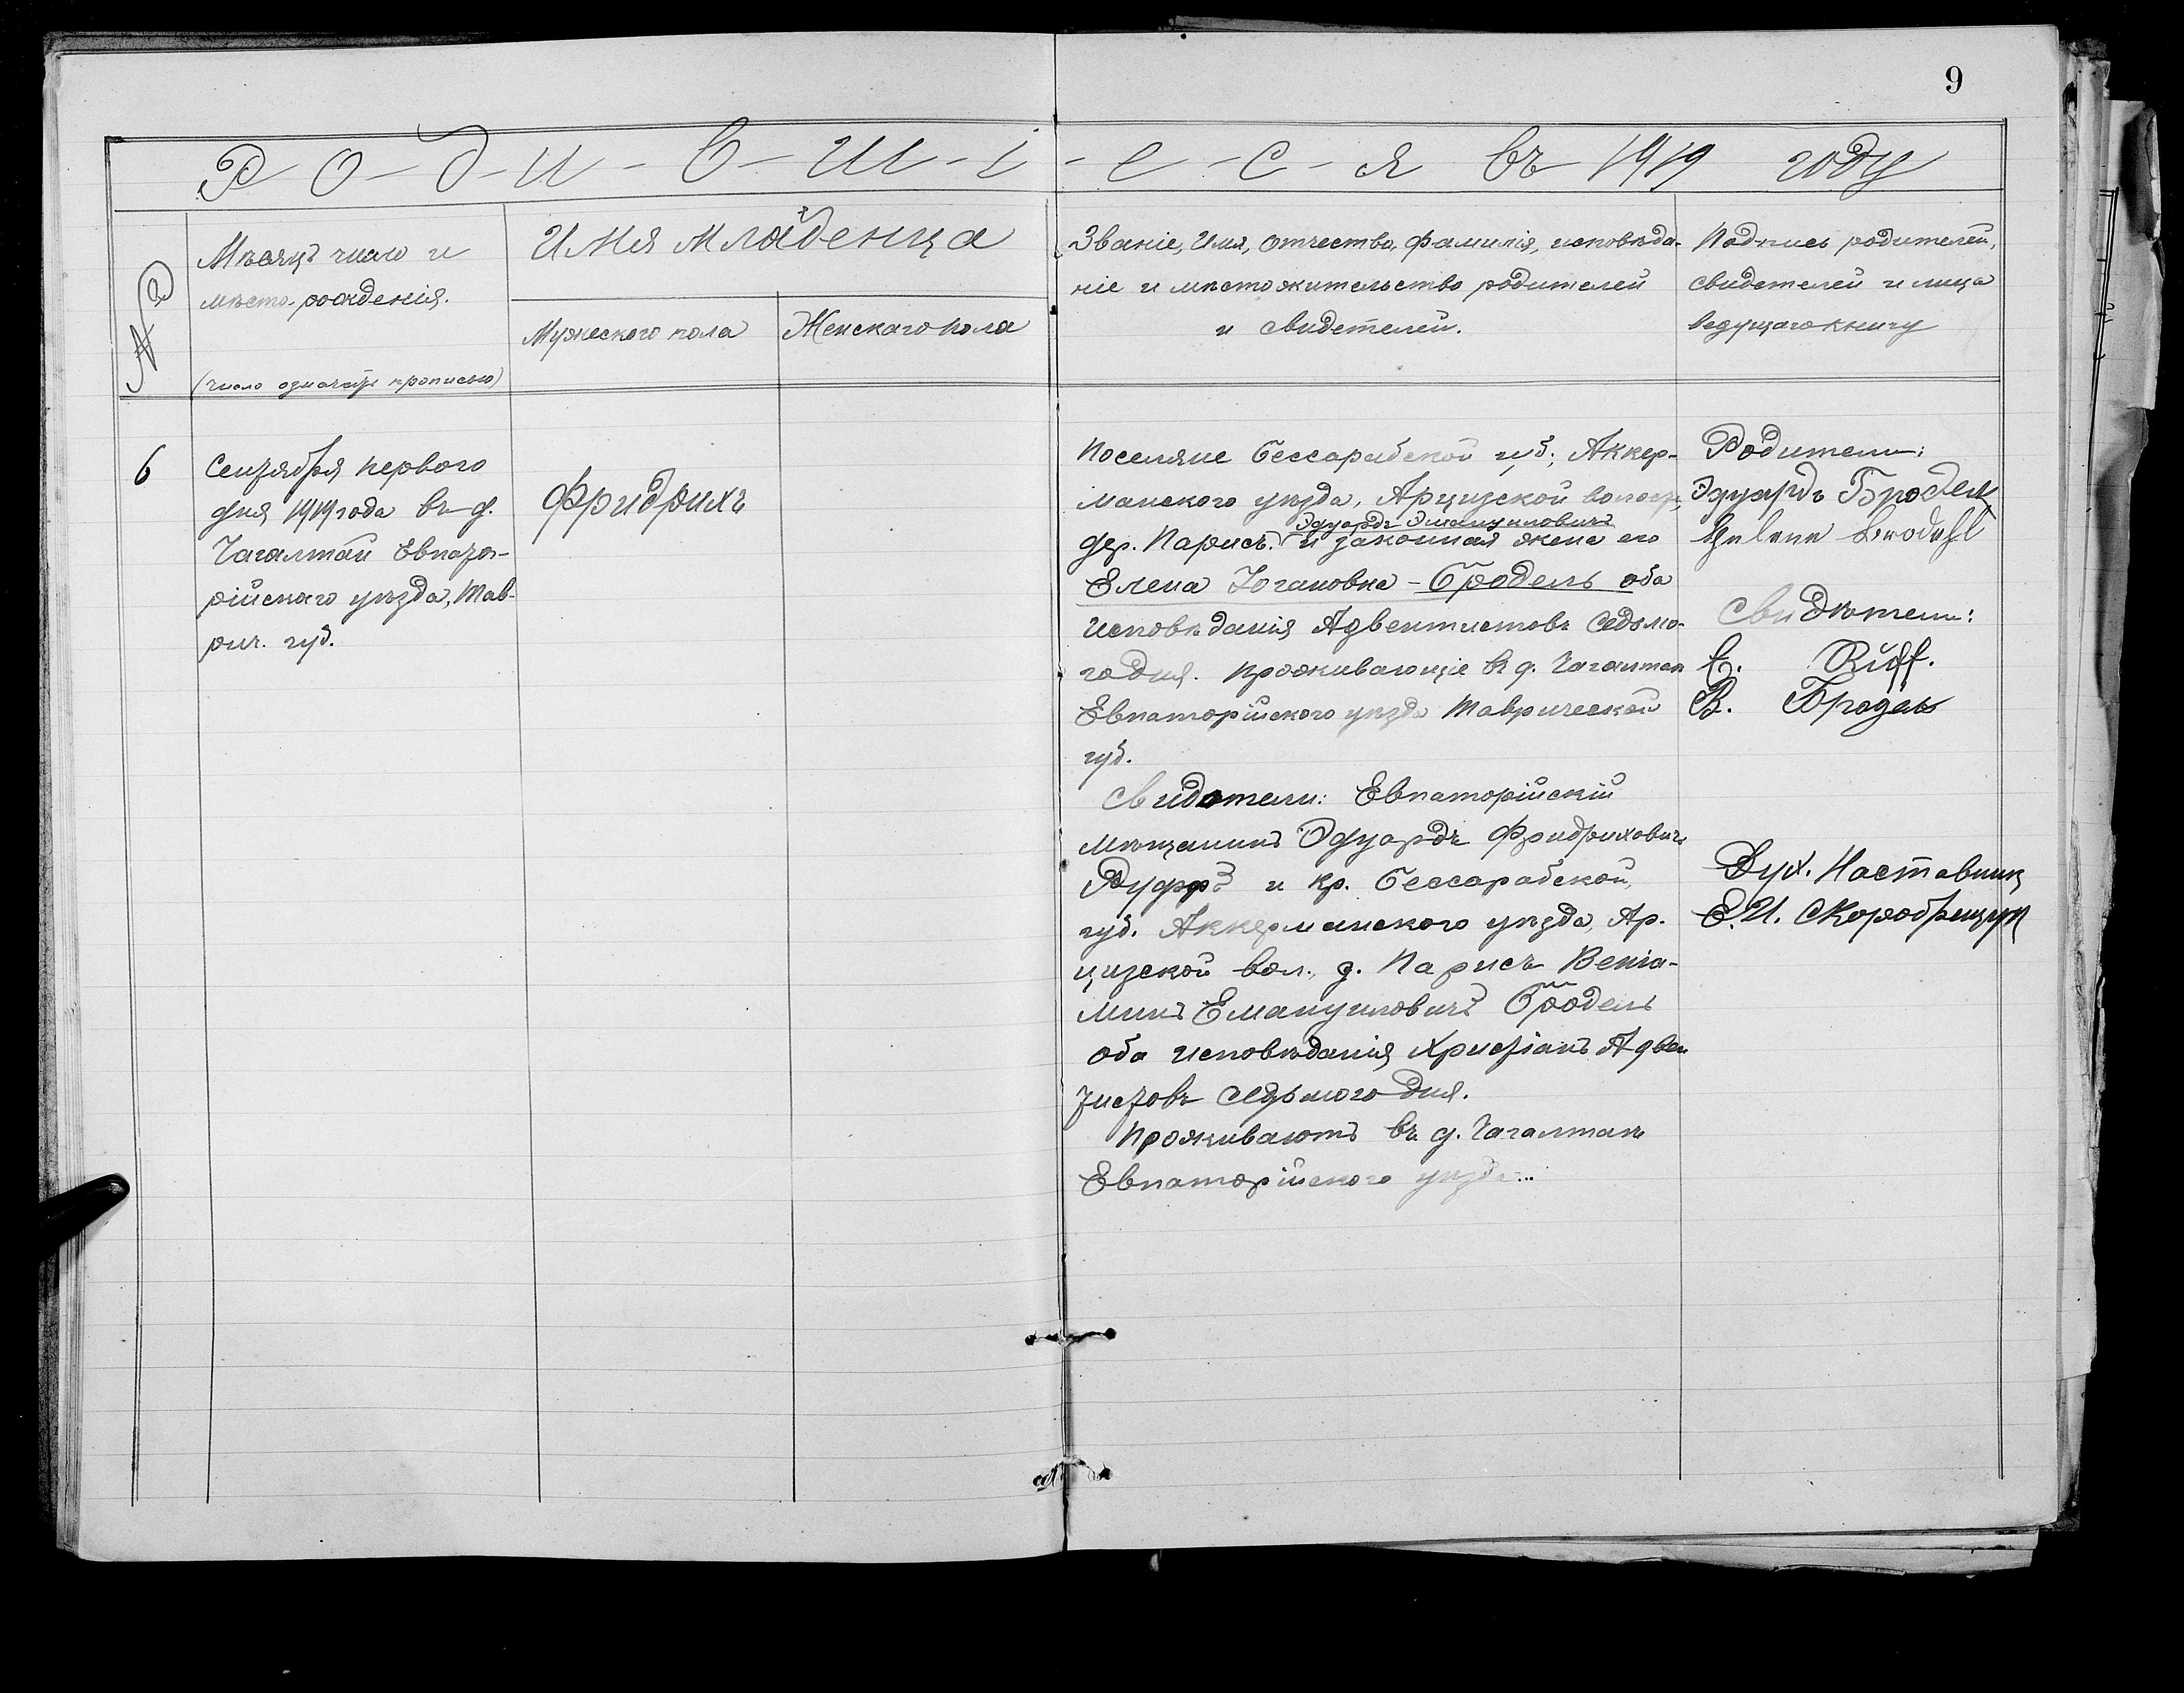 9
Р-о-д-и-в-ш-і-е-с-я въ 1919 году
№
Мѣсяцъ число и
мѣсто рожденія.
(число означать прописью)
Имя младенца
Мужеского пола
Женскаго пола
Званіе, Имя, отчество, фамилія, исповѣда-
ніе и мѣстожительство родителей
и свидетелей.
Подпись родителей,
свидетелей и лица
ведущаго книгу
6
Сентября первого
дня 1919 года въ д.
Чагалтай Евпато-
рійскаго уѣзда, Тав-
рич. губ.
Фридрихъ
Поселяне Бессарабской губ., Аккер-
манского уѣзда, Арцизской волости,
Эдуардъ Эмануиловичъ
дер. Парисъ. и законная жена его
Елена Іогановна - Бродель оба
исповѣданія Адвентистовъ Седьмо-
го дня. проживающіе въ д. Чагалтай
Евпаторійского уѣзда Таврической
губ.
Свидотели: Евпаторійскій
мѣщанинъ Эдуардъ Фридриховичъ
Руффъ и кр. Бессарабской
губ. Аккерманского уѣзда, Ар-
цизской вол., д. Парисъ Веніа-
минъ Емануиловичъ Бродель
оба исповѣданія Христіанъ Адвен
тистовъ седьмого дня.
Проживаютъ въ д. Чагалтаѣ
Евпаторійского уѣзда...
Родители:
Эдуардъ Бродель
Helene Brodehl
Свидѣтели:
E. Ruff.
В. Бродель
Дух. Наставник
Е. И. Скоробрещук